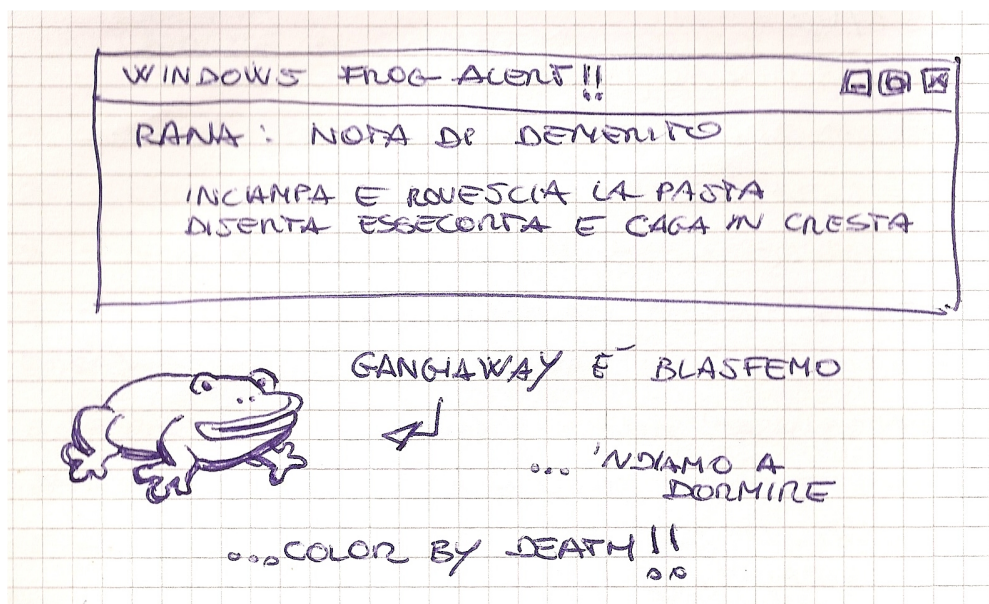 WINDOWS FROG ALERT!!
RANA: NOTA DI DEMERITO
INCIAMPA E ROVESCIA LA PASTA
DISERTA ESSECORTA E CAGA IN CRESTA
GANGIAWAY É BLASFEMO
... 'NDIAMO A
DORMIRE
...COLOR BY DEATH!!